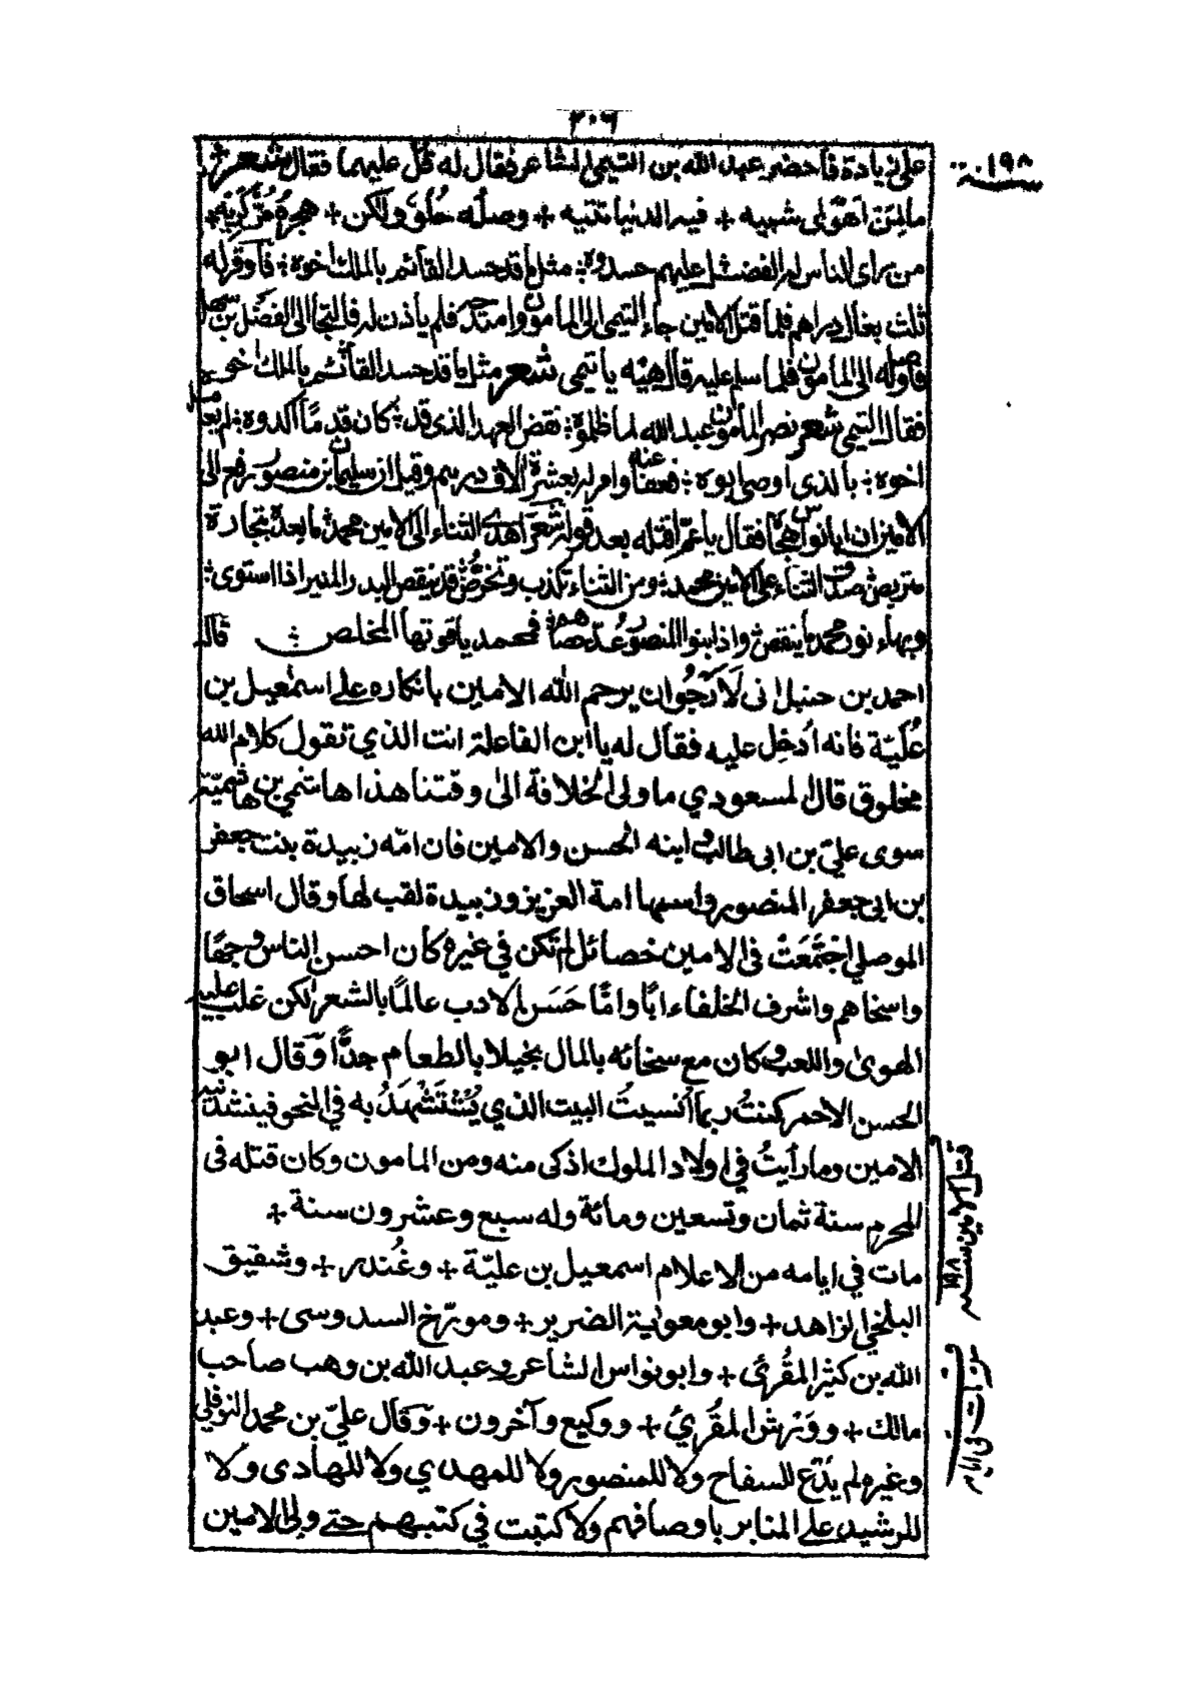 ٣٠٦
سنة ١٩٨
على زيادة فاحضر عبد الله بن التيمي الشاعر فقال له قل عليهما فقال شعر
ما لمن اهوى شبيه + فبه الدنيا تتيه + وصله حلو ولكن + هجره مر كريه +
من راى الناس له الفضل عليهم حسدوه ؛ مثل ما قد حسد القائم بالملك اخوه ؛ فاوقر له
ثلث بغال دراهم فلما قتل الامين جاء التيمي الى المامون وامتدحه فلم يأذن له فالتجأ الى الفضل بن سهل
فاوصله الى المأمون فلما سلم عليه قال هيه يا تيمي شعر مثل ما قد حسد القائم بالملك اخوه
فقال التيمي شعر نصر المأمون عبد الله لما ظلموه ؛ نقض العهد الذي قد ؛ كان قدما اكدوه ؛ لم يعامله
اخوه ؛ بالذي اوصى ابوه ؛ فعفا عنه وامر له بعشرة آلاف درهم وقيل ان سليمان بن منصور رفع الى
الامين ان ابا نواس هجاه فقال يا عم اقتله بعد قوله شعر اهدى الثناء الى الامين محمد ما بعده بتجارة
متربص صدق الثناء على الامين محمد ؛ ومن الثناء تكذب وتخرص قد ينقص البدر المنير اذا استوى ؛
وبهاء نور محمد ما ينقص واذا بنوا المنصور عد حصاهم فمحمد ياقوتها المخلص ؛ قال
احمد بن حنبل انى لَأَرْجُو ان يرحم الله الامين بانكاره على اسمعيل بن
عُلَيّة فانه اُدخِل عليه فقال له يا ابن الفاعلة انت الذي تقول كلام الله
مخلوق قال المسعودي ما ولى الخلافة الى وقتنا هذا هاشمي بن هاشميّة
سوى عليّ بن ابى طالب وابنه الحسن والامين فان امّه زبيدة بنت جعفر
بن ابى جعفر المنصور واسمها امة العزيز وزبيدة لقب لها وقال اسحاق
الموصلي اجْتَمَعَتْ فى الامين خصائل لم تكن في غيره كان احسن الناس وجهًا
واسخاهم واشرف الخلفاء ابًا وامًّا حَسَن الادب عالمًا بالشعر لكن غلب عليه
الهوى واللعب وكان مع سخائه بالمال بخيلا بالطعام جدًّا وقال ابو
الحسن الاحمر كنتُ ربما اُنسيتُ البيت الذي يُسْتَشْهَدُ به في النحو فينشدنيه
الامين وما رأيتُ في اولاد الملوك اذكى منه ومن المامون وكان قتله فى
المحرم سنة ثمان وتسعين ومائة وله سبع وعشرون سنة +
مات في ايامه من الاعلام اسمعيل بن عليّة + وغُندر + وشقيق
البلخي الزاهد + وابو معوٰية الضرير + ومورّخ السدوسى + وعبد
الله بن كثير المقُرئ + وابو نواس الشاعر وعبد الله بن وهب صاحب
مالك + ووَرْش المقُرئ + ووكيع وآخرون + وقال عليّ بن محمد النوفلي
وغيره لم يُدْعَ للسفاح ولا للمنصور ولا للمهدي ولا للهادى ولا
للرشيد على المنابر باوصافهم ولا كتبت في كتبهم حتى ولى الامين
قتل الامين سنة ١٩٨